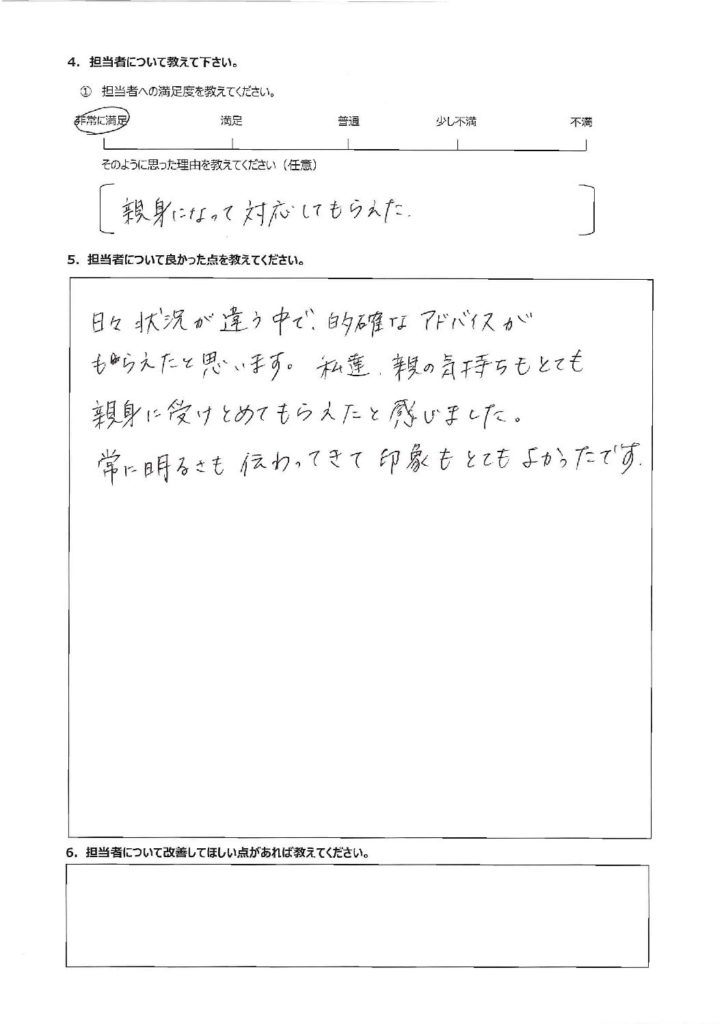 4. 担当者について教えて下さい。
① 担当者への満足度を教えてください。
非常に満足 満足 普通 少し不満 不満
そのように思った理由を教えてください（任意）
親身になって対応してもらえた.
5. 担当者について良かった点を教えてください。
日々状況が違う中で、的確なアドバイスが
もらえたと思います。私達、親の気持ちもとても
親身に受けとめてもらえたと感じました。
常に明るさも伝わってきて印象もとてもよかったです.
6. 担当者について改善してほしい点があれば教えてください。